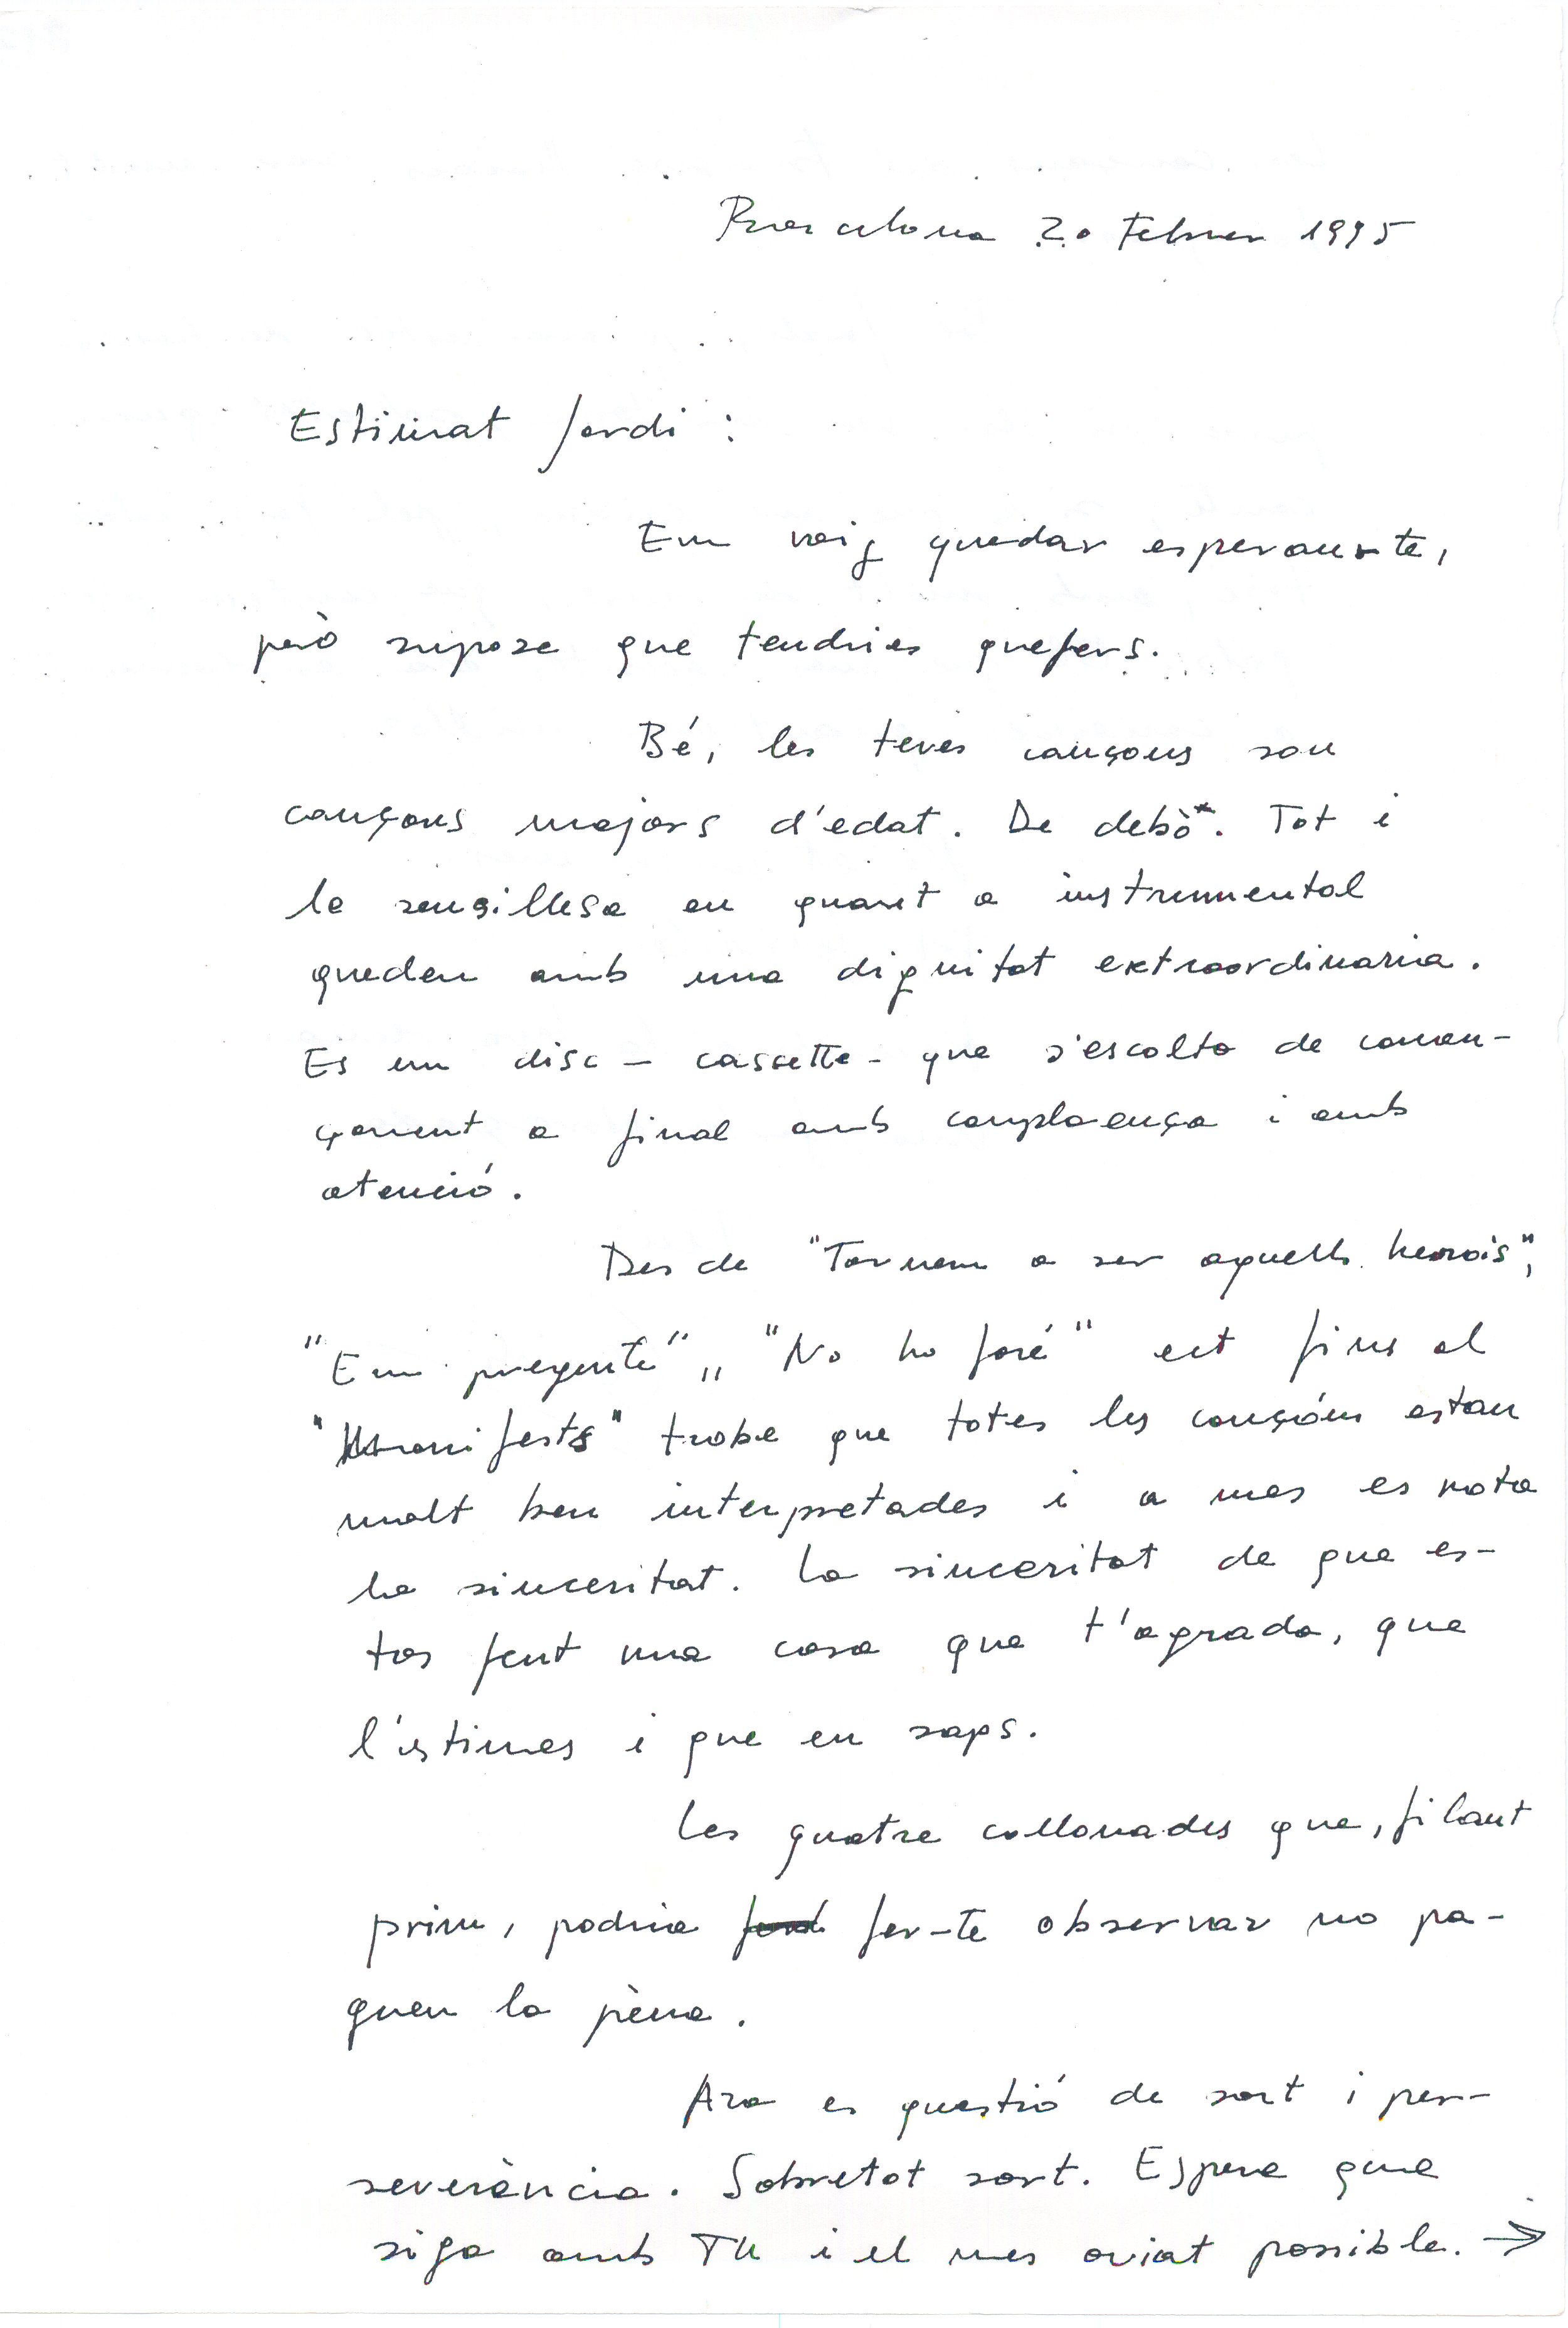 Barcelona 20 Febrer 1995
Estimat Jordi :
Em vaig quedar esperant-te,
però supose que tendries quefers.
Bé, les teves cançons son
cançons majors d'edat. De debò*. Tot i
la sensillesa en quant a instrumental
queden amb una dignitat extraordinaria.
Es un disc - cassette - que s'escolta de comen-
çament a final amb complaença i amb
atenció.
Des de "Tornem a ser aquells herois",
"Em pregunte", "No ho faré" ect fins al
"Manifests" trobe que totes les cançóns estan
molt ben interpretades i a mes es nota
la sinceritat. La sinceritat de que es-
tas fent una cosa que t'agrada, que
l'estimes i que en saps.
Les quatre collonades que, filant
prim, podria fer-te observar no pa-
guen la pèna.
Ara es questió de sort i per-
severància. Sobretot sort. Espere que
siga amb TU i el mes aviat possible. →